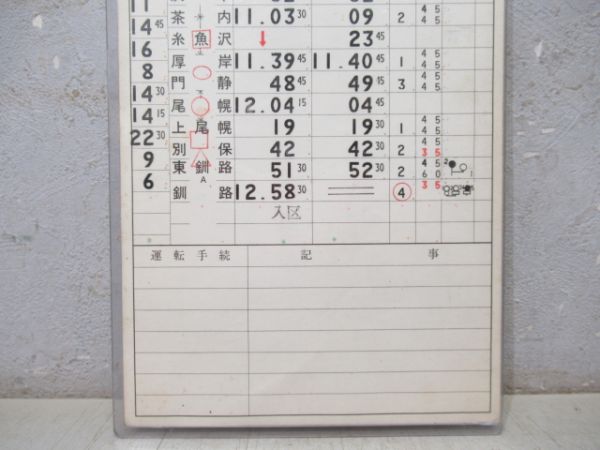 11
14 45 茶 内 11.03 30 09 2 4 5 4 5
16 糸 魚 沢 ↓ 23 45
8 厚 岸 11.39 45 11.40 45 1 4 5 4 5
14 30 門 静 48 45 49 15 3 4 5 4 5
14 15 尾 幌 12.04 15 04 45
22 30 上 尾 幌 19 19 30 1 4 5 4 5
9 別 保 42 42 30 2 4 5 3 5
6 東 釧 路 51 30 52 30 2 4 5 6 0
釧 A 路 12.58 30 4 3 5
入区
運転手続 記事